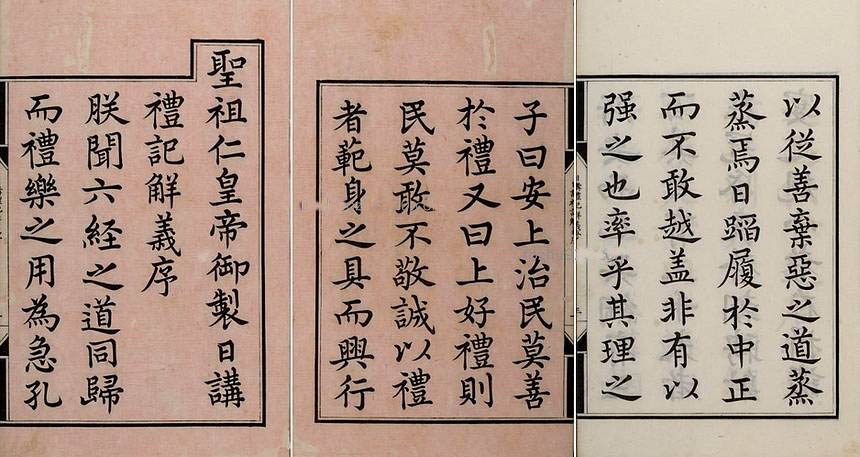 聖祖仁皇帝御製日講
禮記解義序
朕聞六経之道同歸
而禮樂之用為急孔
子曰安上治民莫善
於禮又曰上好禮則
民莫敢不敬誠以禮
者範身之具而興行
以從善棄惡之道蒸
蒸焉日蹈履於中正
而不敢越盖非有以
强之也率乎其理之